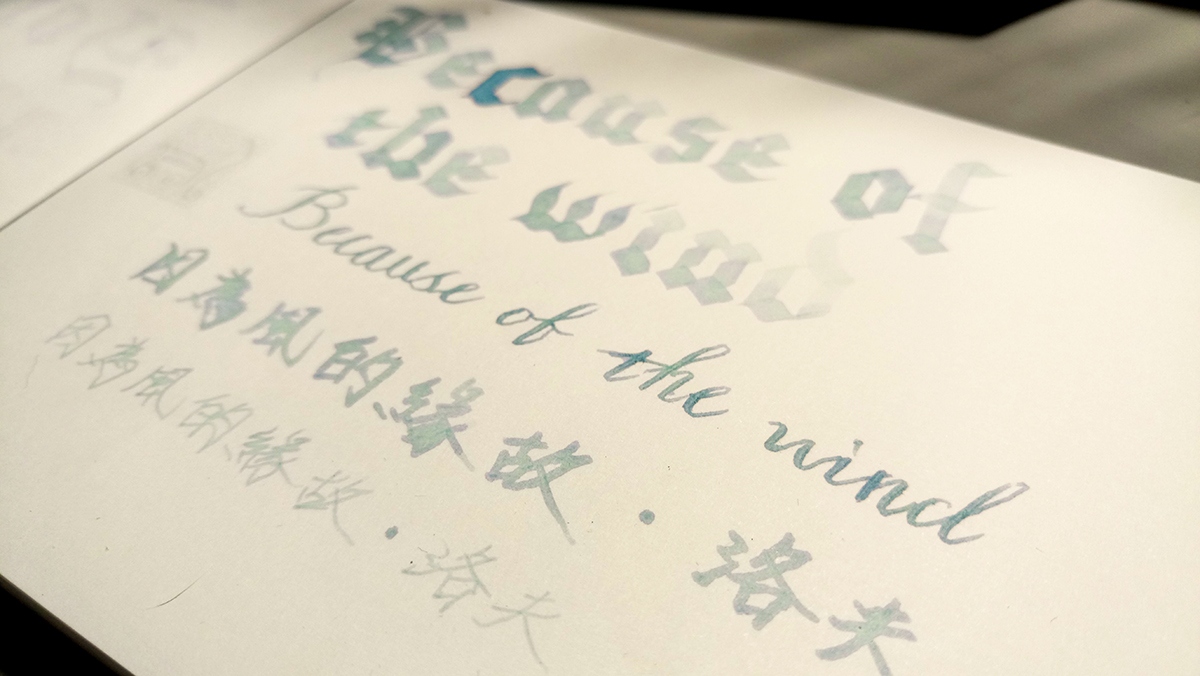 Because of
the wind
Because of the wind
因為風的緣故．洛夫
因為風的緣故．洛夫